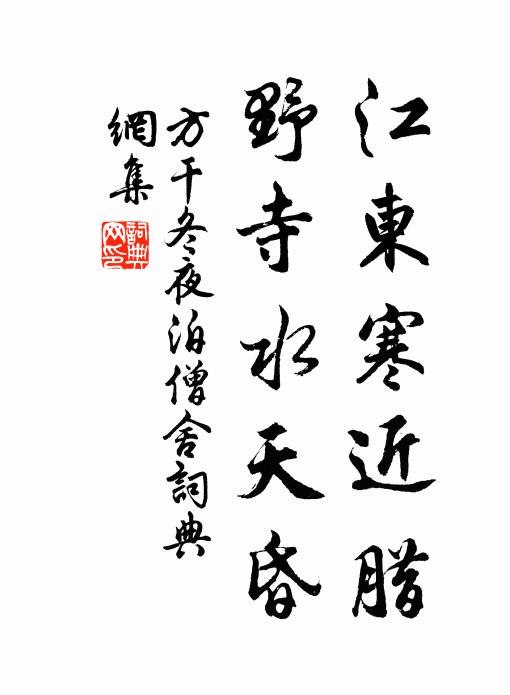 江東寒近腊
野寺水天昏
方干冬夜泊僧舍詞典
網集
詞典
网印